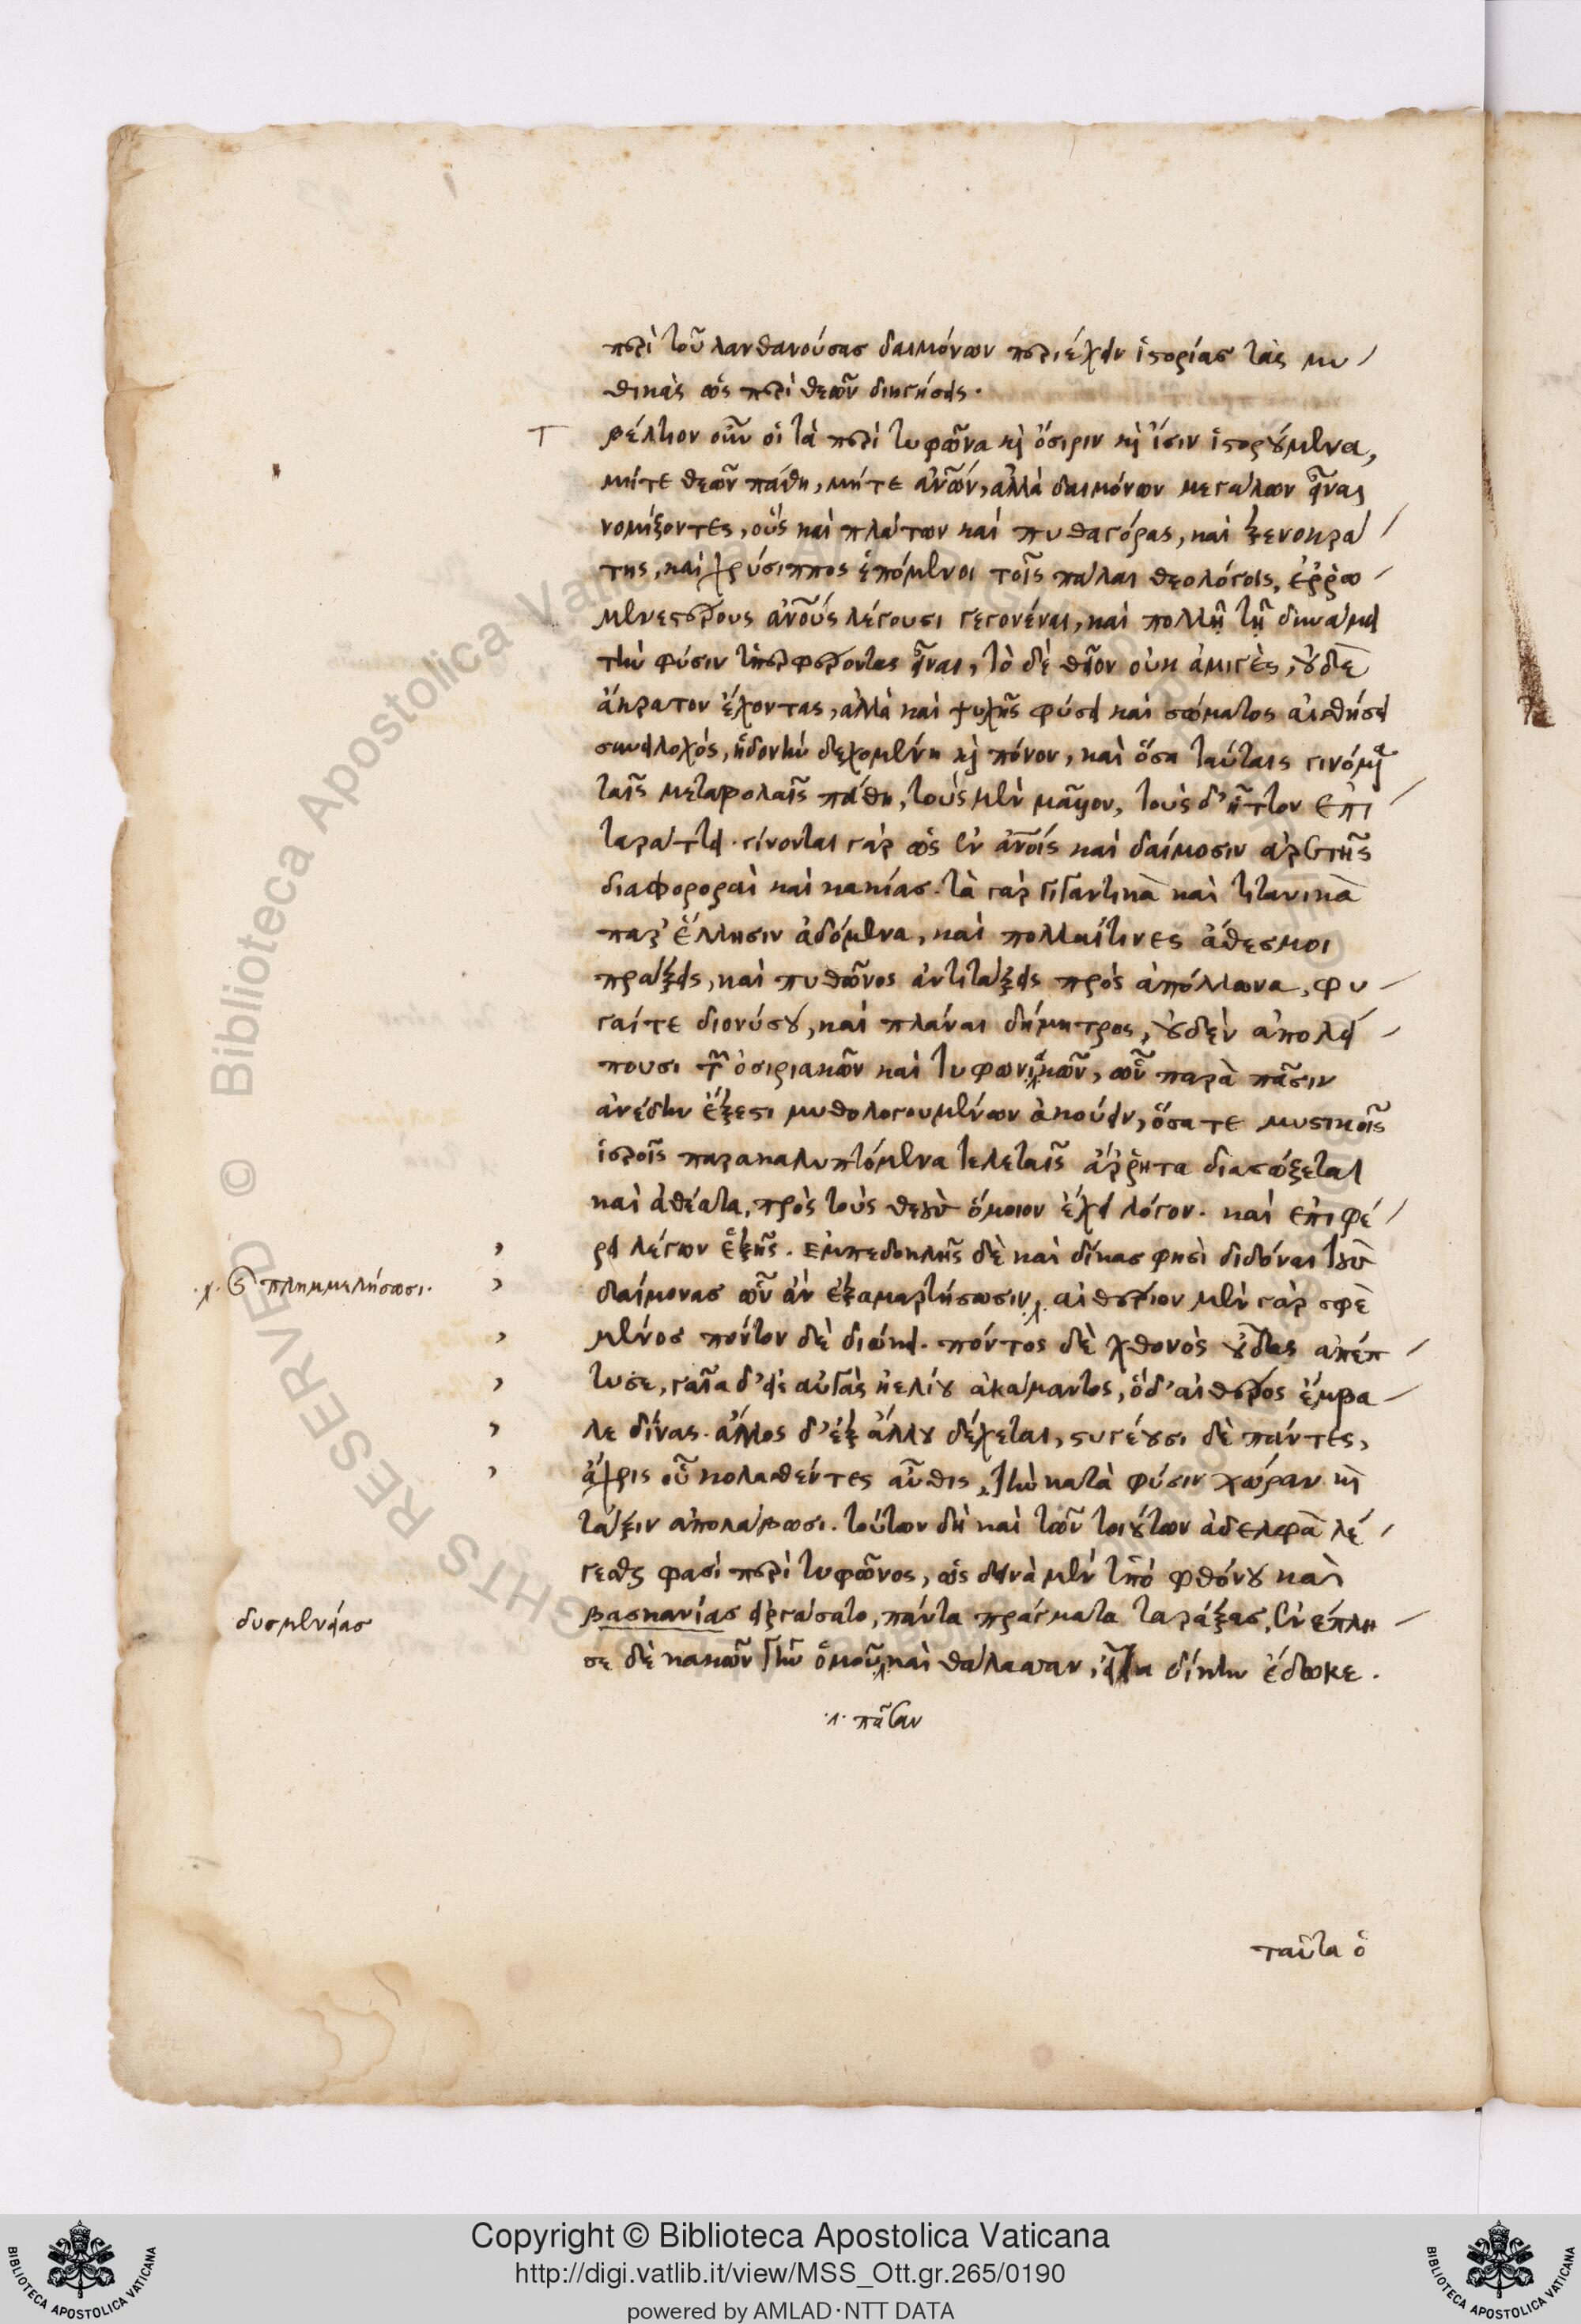 περὶ τοῦ λανθανούσας δαιμόνων περιέχειν ἱστορίας τὰς μυ
θικὰς ὡς περὶ θεῶν διηγήσεις.
βέλτιον οὖν οἱ τὰ περὶ τυφῶνα κὶ ὄσιριν κὶ ἶσιν ἱστορούμενα,
μήτε θεῶν πάθη, μήτε ἀνῶν, ἀλλὰ δαιμόνων μεγάλων εἶναι
νομίζοντες, οὓς καὶ πλάτων καὶ πυθαγόρας, καὶ ξενοκρά
της, καὶ χρύσιππος ἑπόμενοι τοῖς πάλαι θεολόγοις, ἐῤῥω
μενεστέρους ἀνοὺς λέγουσι γεγονέναι, καὶ πολλῇ τῇ δυνάμει
τὴν φύσιν ὑπερφέροντας εἶναι, τὸ δὲ θεῖον οὐκ ἀμιγὲς, οὐδὲ
ἄκρατον ἔχοντας, ἀλλὰ καὶ ψυχῆς φύσει καὶ σώματος αἰσθήσει
συνειλοχός, ἡδονὴν δεχομένη κὶ πόνον, καὶ ὅσα ταύταις γινόμενα
ταῖς μεταβολαῖς πάθη, τοὺς μὲν μᾶλλον, τοὺς δ' ἧττον ἐπι
ταράττει. γίνονται γὰρ ὡς ἐν ἀνοις καὶ δαίμοσιν ἀρετῆς
διαφοροραὶ καὶ κακίας. τὰ γὰρ γιγαντικὰ καὶ τιτανικὰ
παρ' ἕλλησιν ἀδόμενα, καὶ πολλαίτινες ἄθεσμοι
πράξεις, καὶ πυθῶνος ἀντιτάξεις πρὸς ἀπόλλωνα, φυ
γαίτε διονύσου, καὶ πλάναι δήμητρος, οὐδὲν ἀπολεί
πουσι τῶν ὀσιριακῶν καὶ τυφωνικῶν, ὧν παρὰ πᾶσιν
ἀνέδην ἔξεστι μυθολογουμένων ἀκούειν, ὅσα τε μυστικοῖς
ἱεροῖς παρακαλυπτόμενα τελεταῖς ἄῤῥητα διασώζεται
καὶ ἀθέατα, πρὸς τοὺς θεοὺς ὅμοιον ἔχει λόγον. καὶ ἐπιφέ
ρει λέγων ἑξῆς. ἐμπεδοκλῆς δὲ καὶ δίκας φησὶ διδόναι τοὺς
.γ. πλημμελήσωσι.
δαίμονας ὧν ἂν ἐξαμαρτήσωσιν, αἰθέριον μὲν γὰρ σφὲ
μένος πόντον δὲ διώκει. πόντος δὲ χθονὸς οὖδας ἀπέπ
τυσε, γαῖα δ' εἰς αὐγὰς ἠελίου ἀκάμαντος, ὅδ' αἰθέρος ἔμβα
λε δίναις. ἄλλος δ' ἐξ ἄλλου δέχεται, στυγέουσι δὲ πάντες,
ἄχρις οὗ κολασθέντες αὖθις, τὴν κατὰ φύσιν χώραν κὶ
τάξιν ἀπολάβωσι. τούτων δὴ καὶ τῶν τοιούτων ἀδελφὰ λέ
γεσθαι φασὶ περὶ τυφῶνος, ὡς δεινὰ μὲν ὑπὸ φθόνου καὶ
δυσμενείας
βασκανίας εἰργάσατο, πάντα πράγματα ταράξας, ἐνέπλη
σε δὲ κακῶν γῆν ὁμοῦ καὶ θάλασσαν, εἶτα δίκην ἔδωκε.
.γ. πᾶσαν
ταῦτα ὁ
Copyright © Biblioteca Apostolica Vaticana
http://digi.vatlib.it/view/MSS_Ott.gr.265/0190
powered by AMLAD·NTT DATA